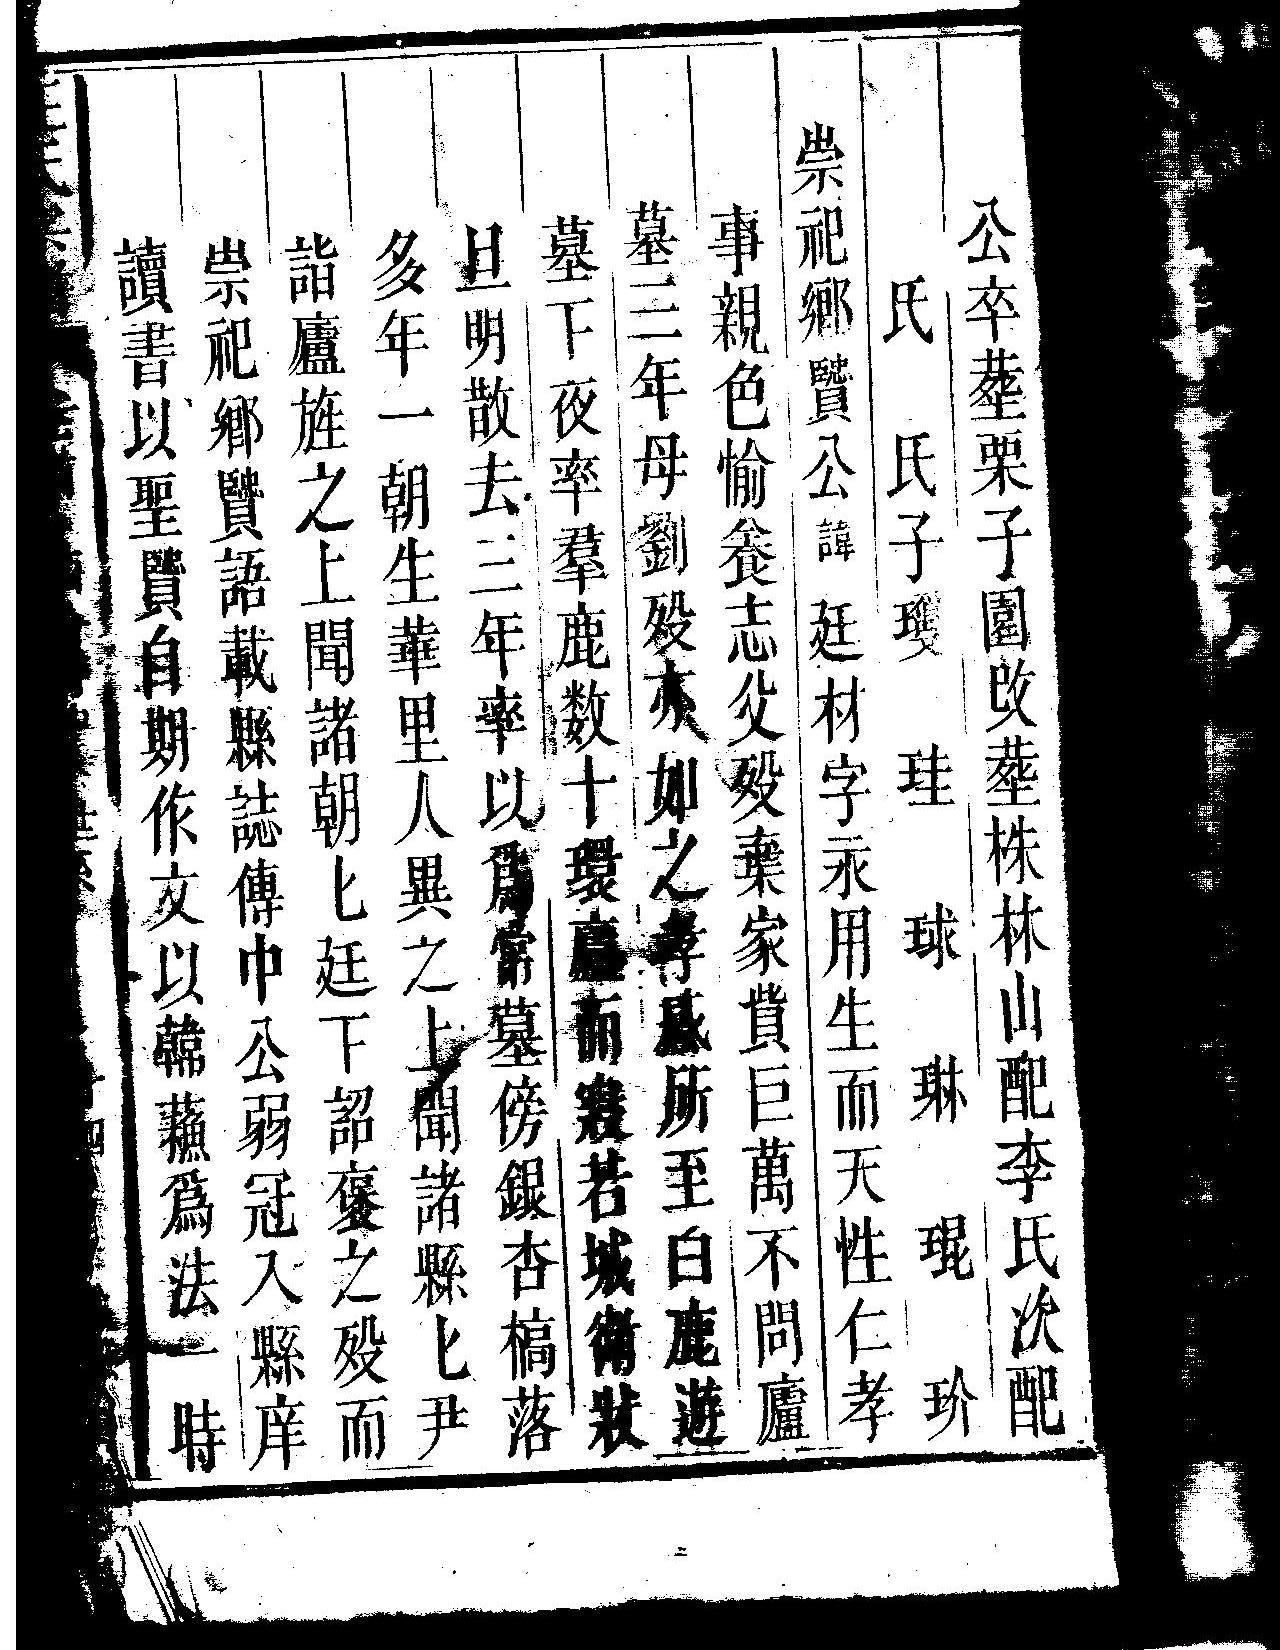 公卒塟栗子園改塟株林山配李氏次配
氏　氏子瓊　珪　球　琳　琨　玠
崇祀鄉賢公諱廷材字永用生而天性仁孝
事親色愉養志父歿棄家貲巨萬不問廬
墓三年母劉歿亦如之孝感所至白鹿遊
墓下夜率羣鹿数十環廬而寢若城衛狀
旦明散去三年率以爲常墓傍銀杏槁落
多年一朝生華里人異之上聞諸縣匕尹
詣廬旌之上聞諸朝匕廷下詔褒之歿而
崇祀鄉賢語載縣誌傳中公弱冠入縣庠
讀書以聖賢自期作文以韓蘓爲法一時